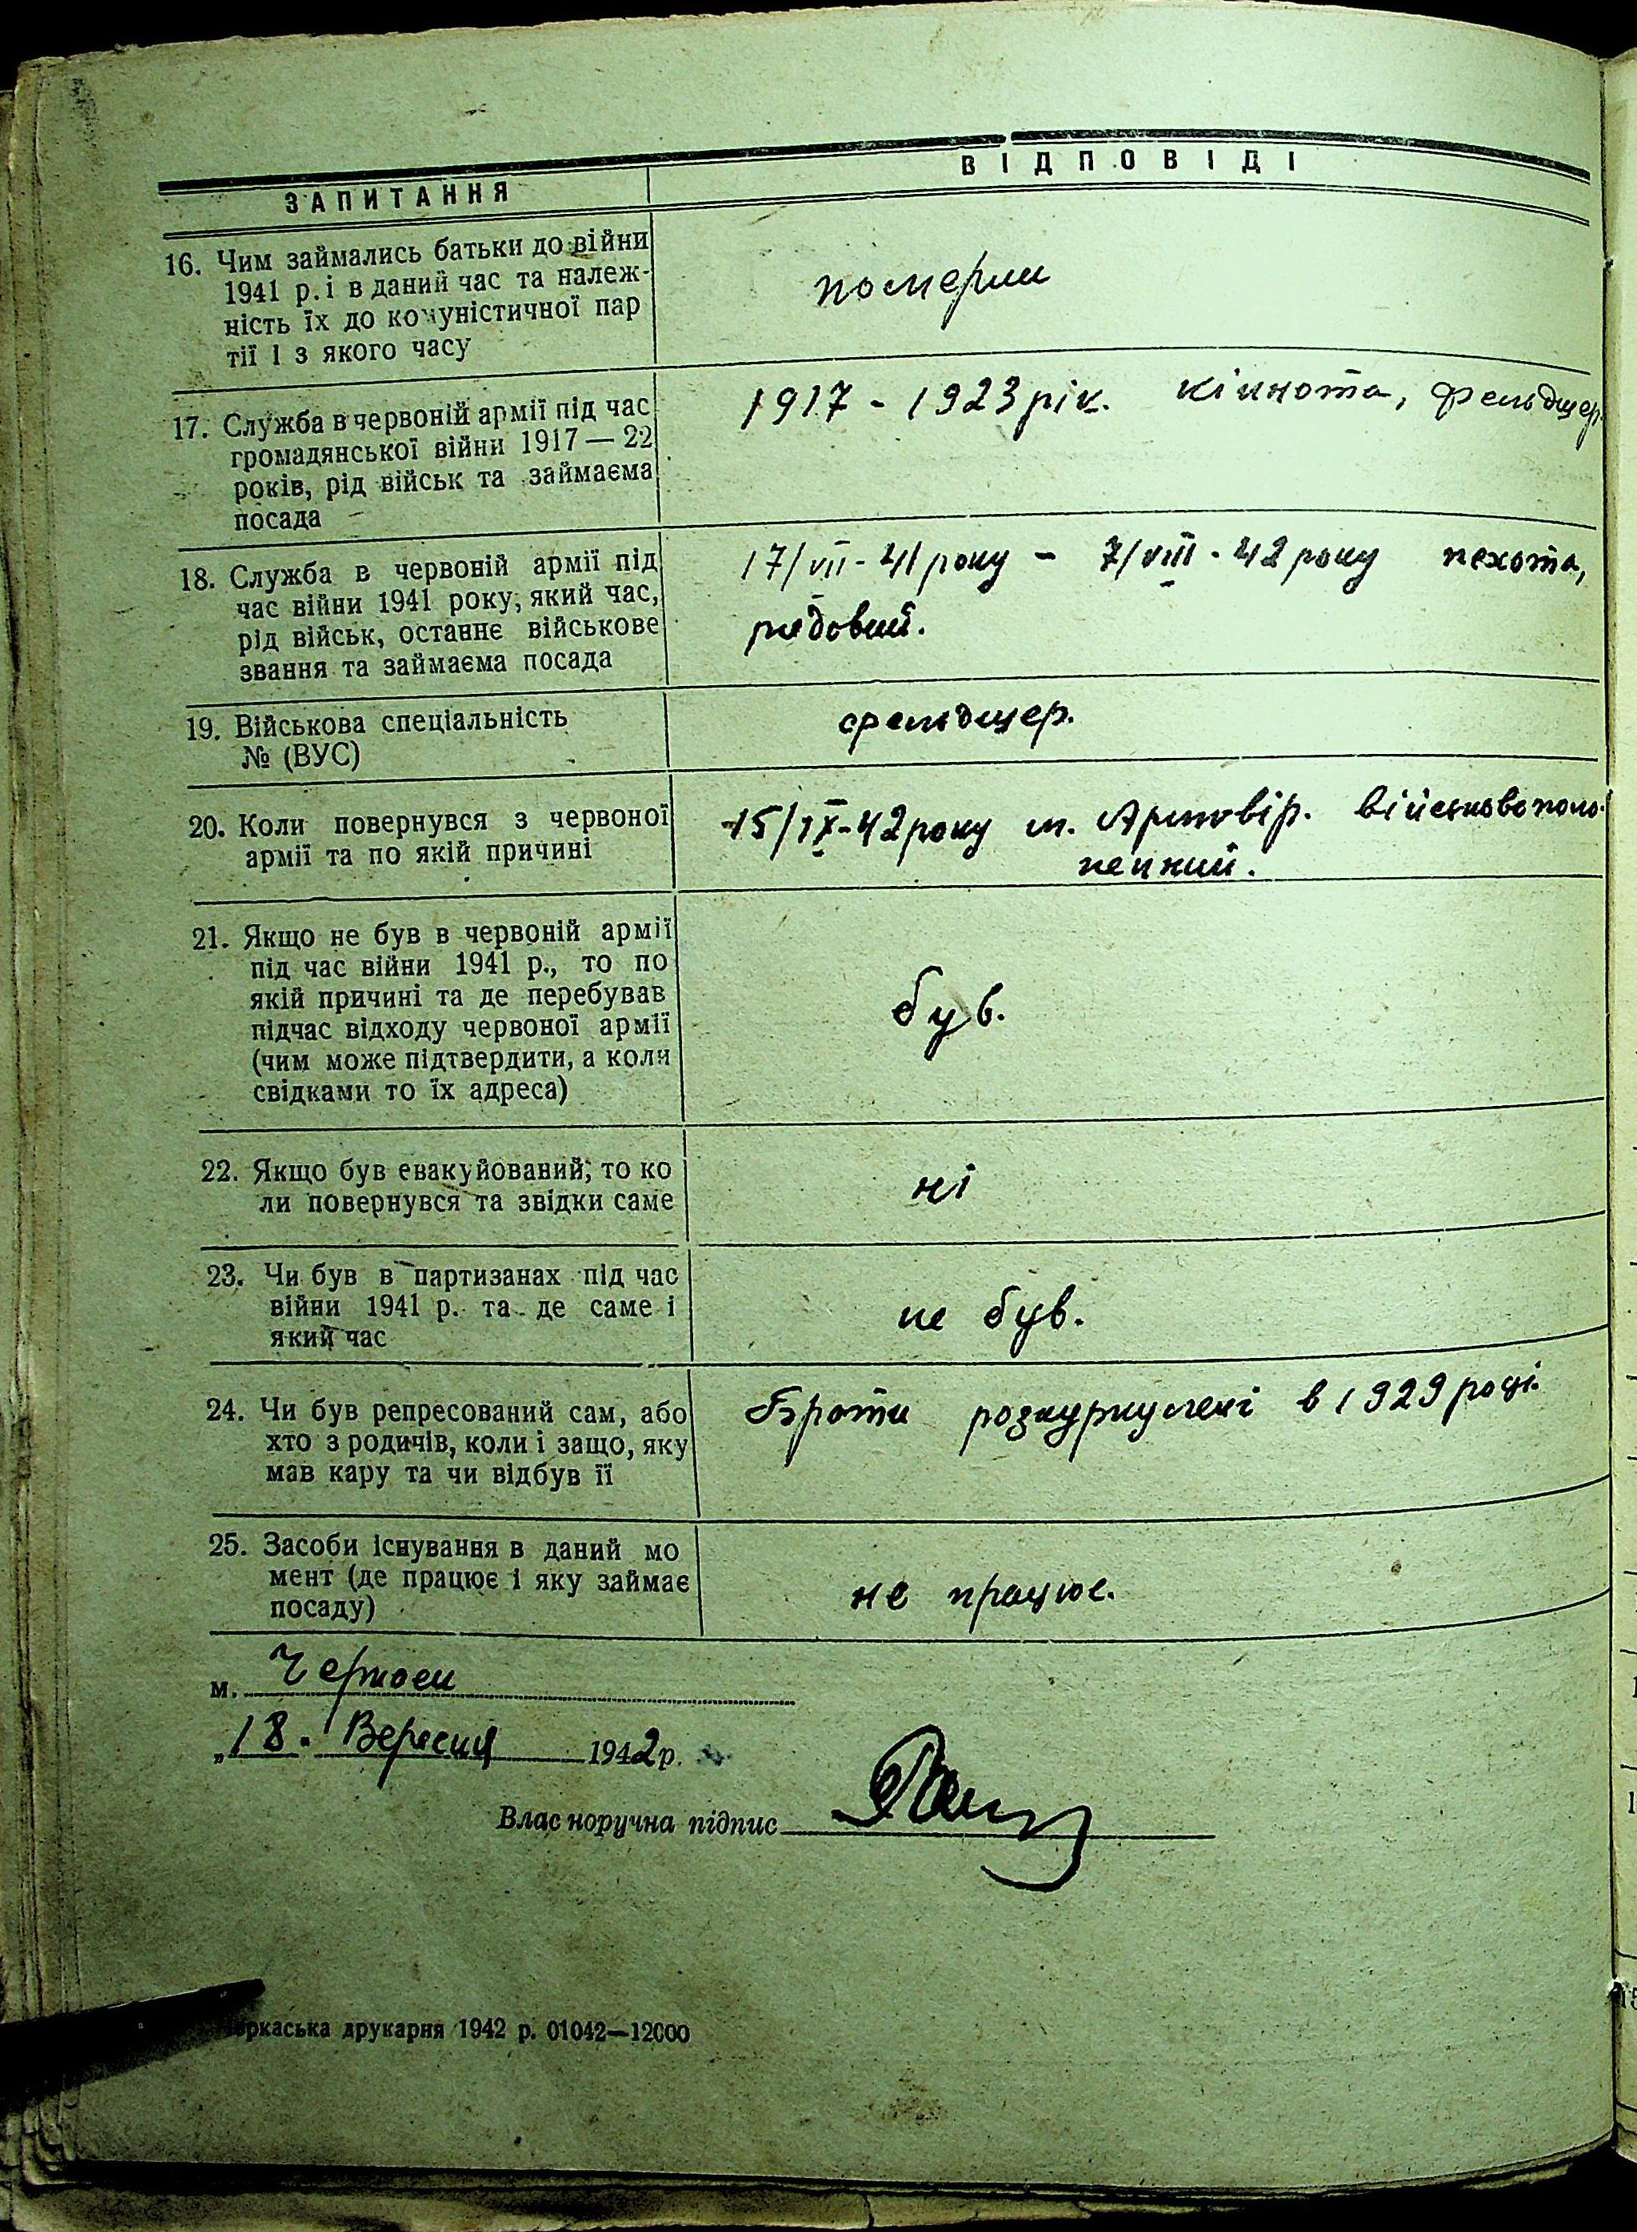 ЗАПИТАННЯ
ВІДПОВІДІ
16. Чим займались батьки до війни
1941 р. і в даний час та належ-
ність їх до комуністичної пар
тії і з якого часу
померли
17. Служба в червоній армії під час
громадянської війни 1917 — 22
років, рід військ та займаєма
посада
1917 - 1923 рік. кіннота, фельдшер.
18. Служба в червоній армії під
час війни 1941 року, який час,
рід військ, останнє військове
звання та займаєма посада
17/VII - 41 року - 7/VIII - 42 року пехота,
рядовий.
19. Військова спеціальність
№ (ВУС)
фельдшер.
20. Коли повернувся з червоної
армії та по якій причині
15/IX-42 року м. Армовір. військовополо-
нений.
21. Якщо не був в червоній армії
під час війни 1941 р., то по
якій причині та де перебував
підчас відходу червоної армії
(чим може підтвердити, а коли
свідками то їх адреса)
був.
22. Якщо був евакуйований, то ко
ли повернувся та звідки саме
ні
23. Чи був в партизанах під час
війни 1941 р. та де саме і
який час
не був.
24. Чи був репресований сам, або
хто з родичів, коли і защо, яку
мав кару та чи відбув її
Брати розкуркулені в 1929 році.
25. Засоби існування в даний мо
мент (де працює і яку займає
посаду)
не працюе.
м. Черкаси
„18. Вересня 1942 р.
Власноручна підпис
еркаська друкарня 1942 р. 01042—12000